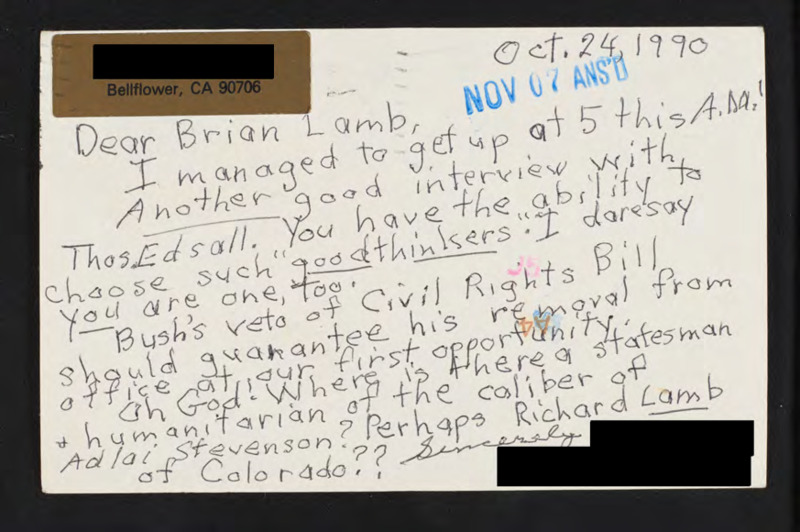 Bellflower, CA 90706
Oct. 24, 1990
NOV 07 ANS'D
Dear Brian Lamb,
I managed to get up at 5 this A.M.!
Another good interview with
Thos. Edsall. You have the ability to
choose such "good thinkers". I daresay
you are one, too.
Bush's veto of Civil Rights Bill
should guarantee his removal from
office at our first opportunity.
Oh God! Where is there a statesman
+ humanitarian of the caliber of
Adlai Stevenson? Perhaps Richard Lamb
of Colorado??
Sincerely